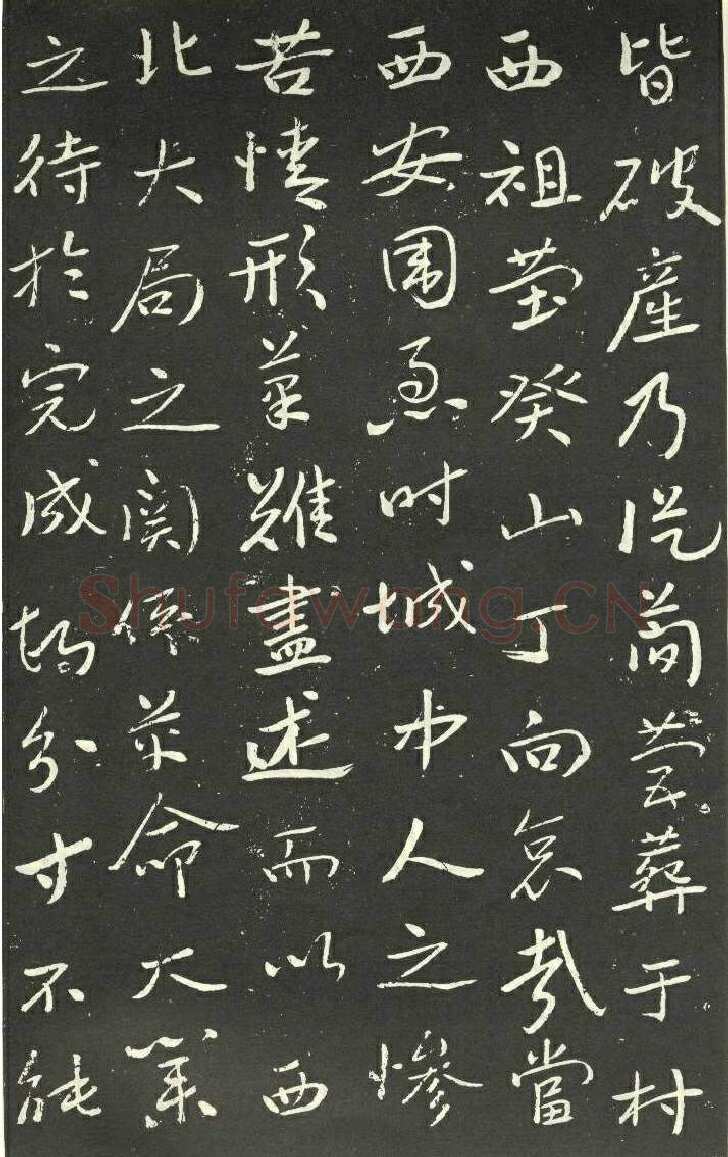 皆破產乃從簡營葬于村
西祖塋癸山丁向哀哉當
西安圍急時城中人之慘
苦情形筆難盡述而以西
北大局之関係革命大業
之待於完成均分寸不能
Shufawang.CN